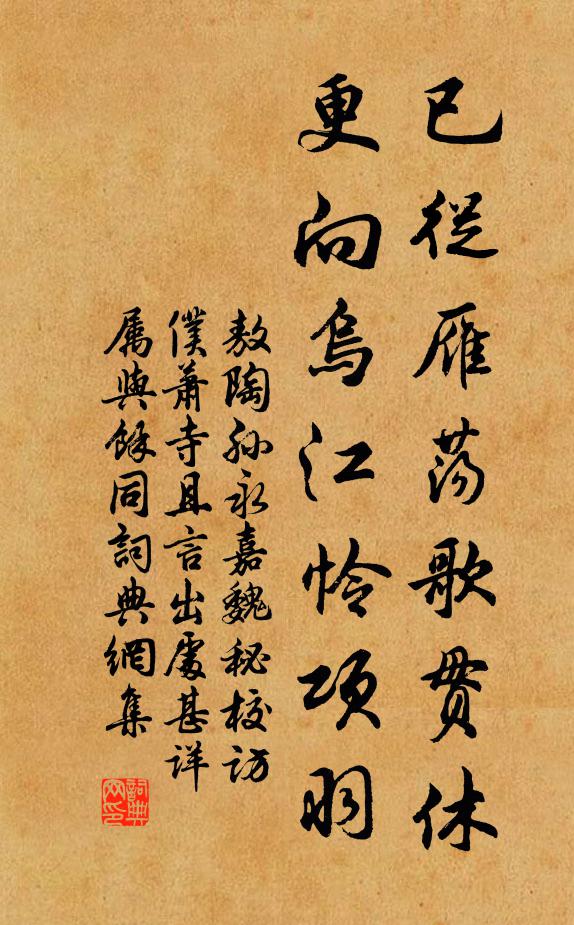 已從雁蕩歌貫休
更向烏江怜項羽
敖陶孫永嘉魏秘校訪
僕蕭寺且言出處甚詳
属與餘同詞典網集
詞典
网印